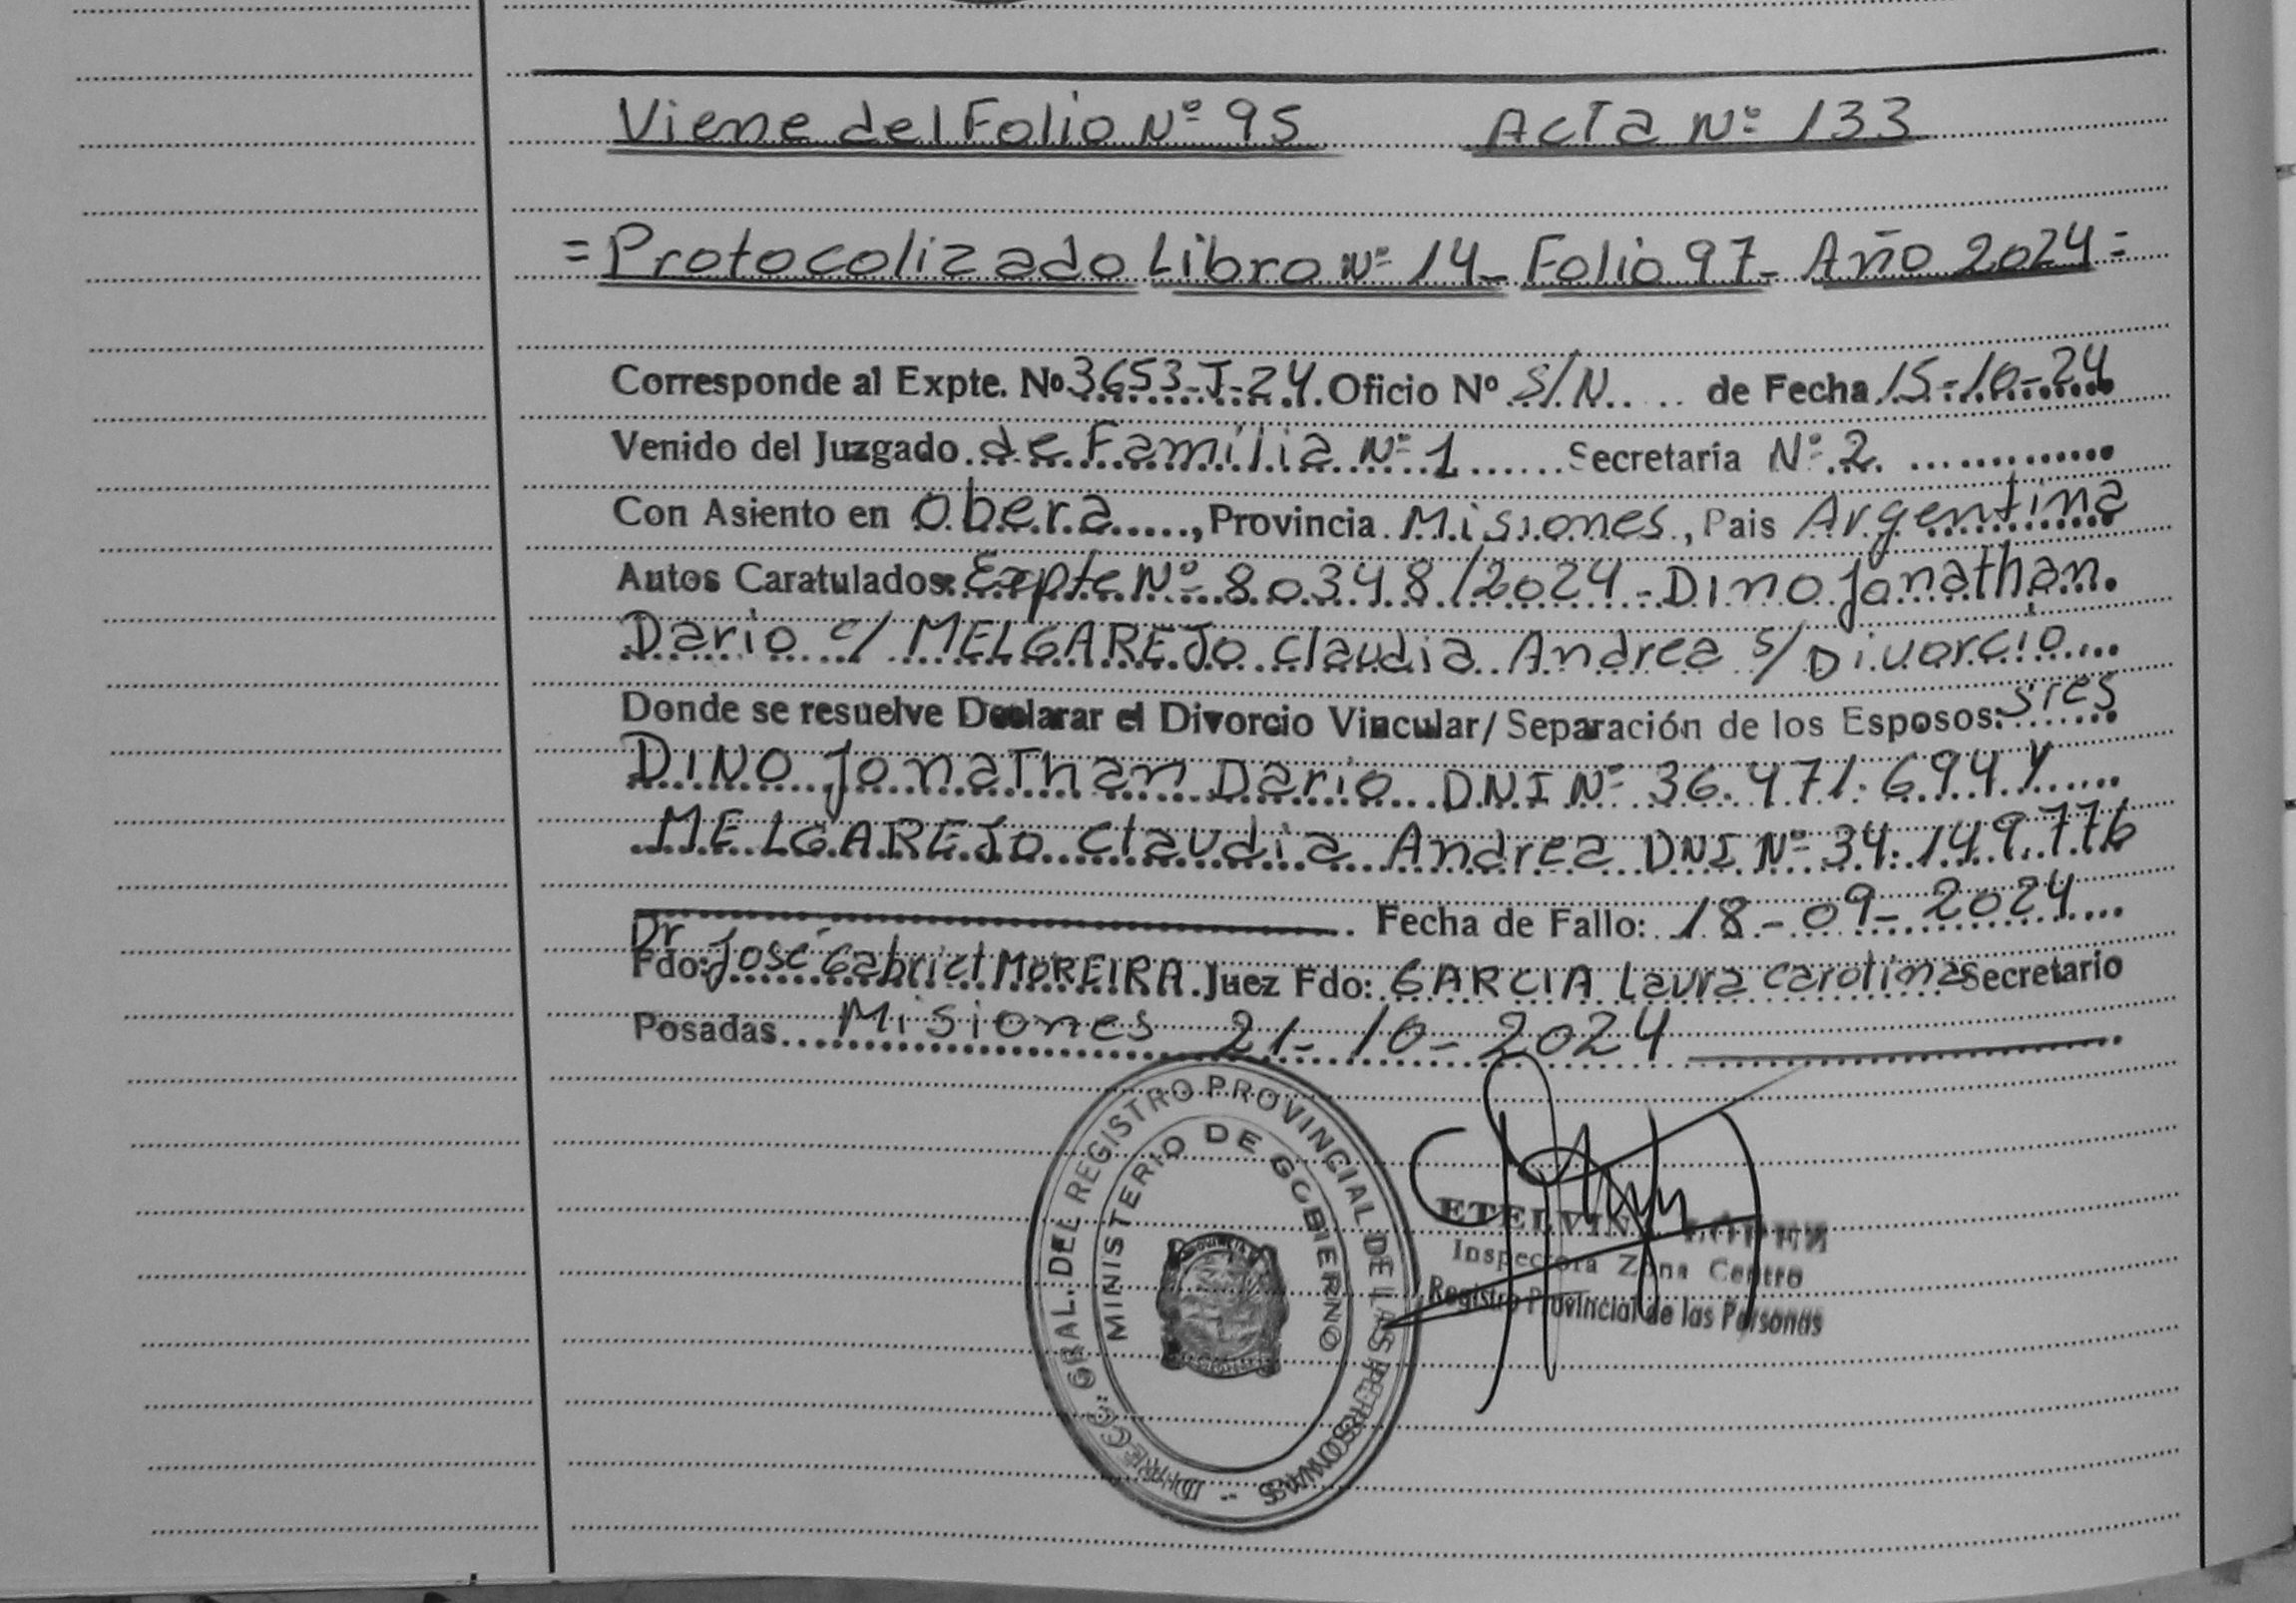 Viene del Folio Nº 95 Acta Nº 133
= Protocolizado Libro Nº 14 - Folio 97 - Año 2024 =
Corresponde al Expte. No 3653-J-24. Oficio Nº S/N..... de Fecha 15-10-24
Venido del Juzgado de Familia Nº 1 ...... Secretaria Nº 2. .............
Con Asiento en Obera ....., Provincia Misiones, Pais Argentina
Autos Caratulados: Expte Nº 80348/2024 - Dino Jonathan.
Dario c/ MELGAREJO Claudia Andrea s/ Divorcio....
Donde se resuelve Declarar el Divorcio Vincular/ Separación de los Esposos: sres
DINO Jonathan Dario DNI Nº 36.471.694 y......
MELGAREJO Claudia Andrea DNI Nº 34.149.776
Fecha de Fallo: 18-09-2024...
Dr
Fdo: José Gabriel MOREIRA. Juez Fdo: GARCIA Laura Carolina Secretario
Posadas... Misiones 21-10-2024
DIRECC. GRAL. DEL REGISTRO PROVINCIAL DE LAS PERSONAS --
MINISTERIO DE GOBIERNO
Inspectora Zona Centro
Registro Provincial de las Personas